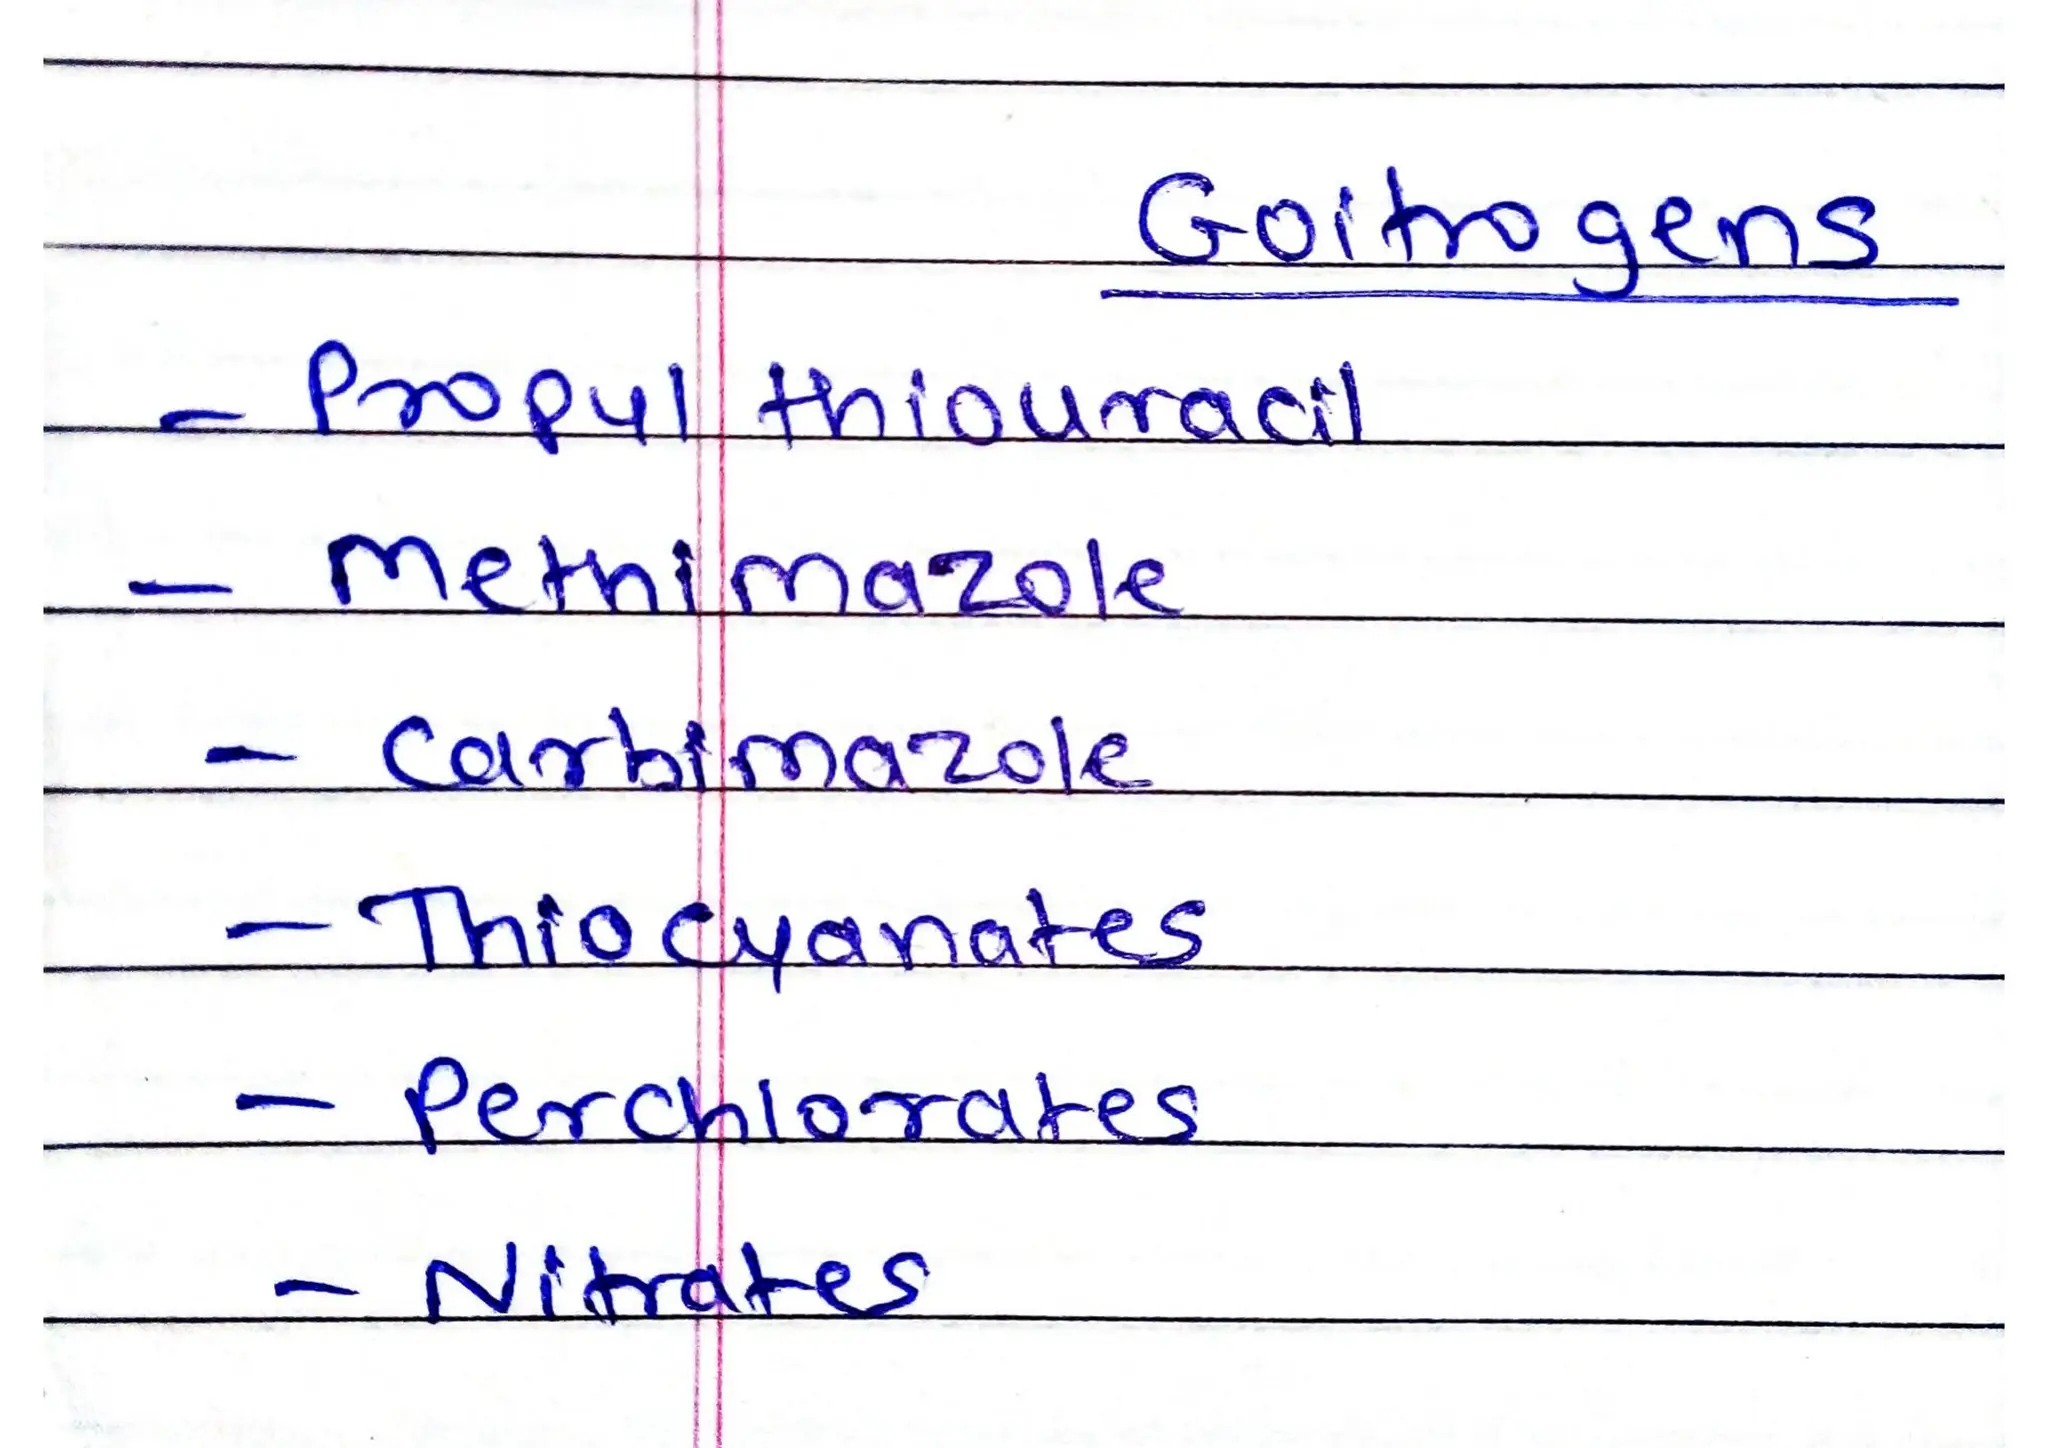 Goitrogens
- Propyl thiouracil
- Methimazole
- Carbimazole
- Thiocyanates
- Perchlorates
- Nitrates